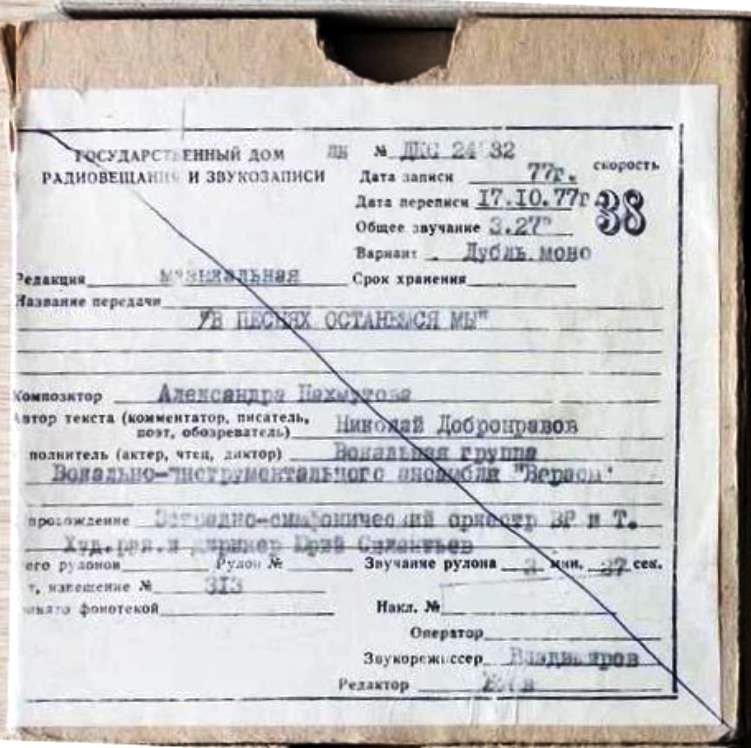 ГОСУДАРСТВЕННЫЙ ДОМ
РАДИОВЕЩАНИЯ И ЗВУКОЗАПИСИ
№ ДКС 24 32
Дата записи 77г.
скорость
38
Дата переписи 17.10.77г
Общее звучание 3.27"
Вариант Дубль моно
Редакция музыкальная Срок хранения
Название передачи
"В ПЕСНЯХ ОСТАНЕМСЯ МЫ"
Композитор Александра Пахмутова
втор текста (комментатор, писатель,
поэт, обозреватель) Николай Добронравов
полнитель (актер, чтец, диктор) Вокальная группа
Вокально-инструментального ансамбля "Верасы"
провождение Эстрадно-симфонический оркестр ВР и Т.
Худ.рук.и дирижер Юрий Силантьев
его рулонов Рулон № Звучание рулона 3 мин. 27 сек.
т, извещение № 313
инято фонотекой Накл. №
Оператор
Звукорежиссер Владимиров
Редактор